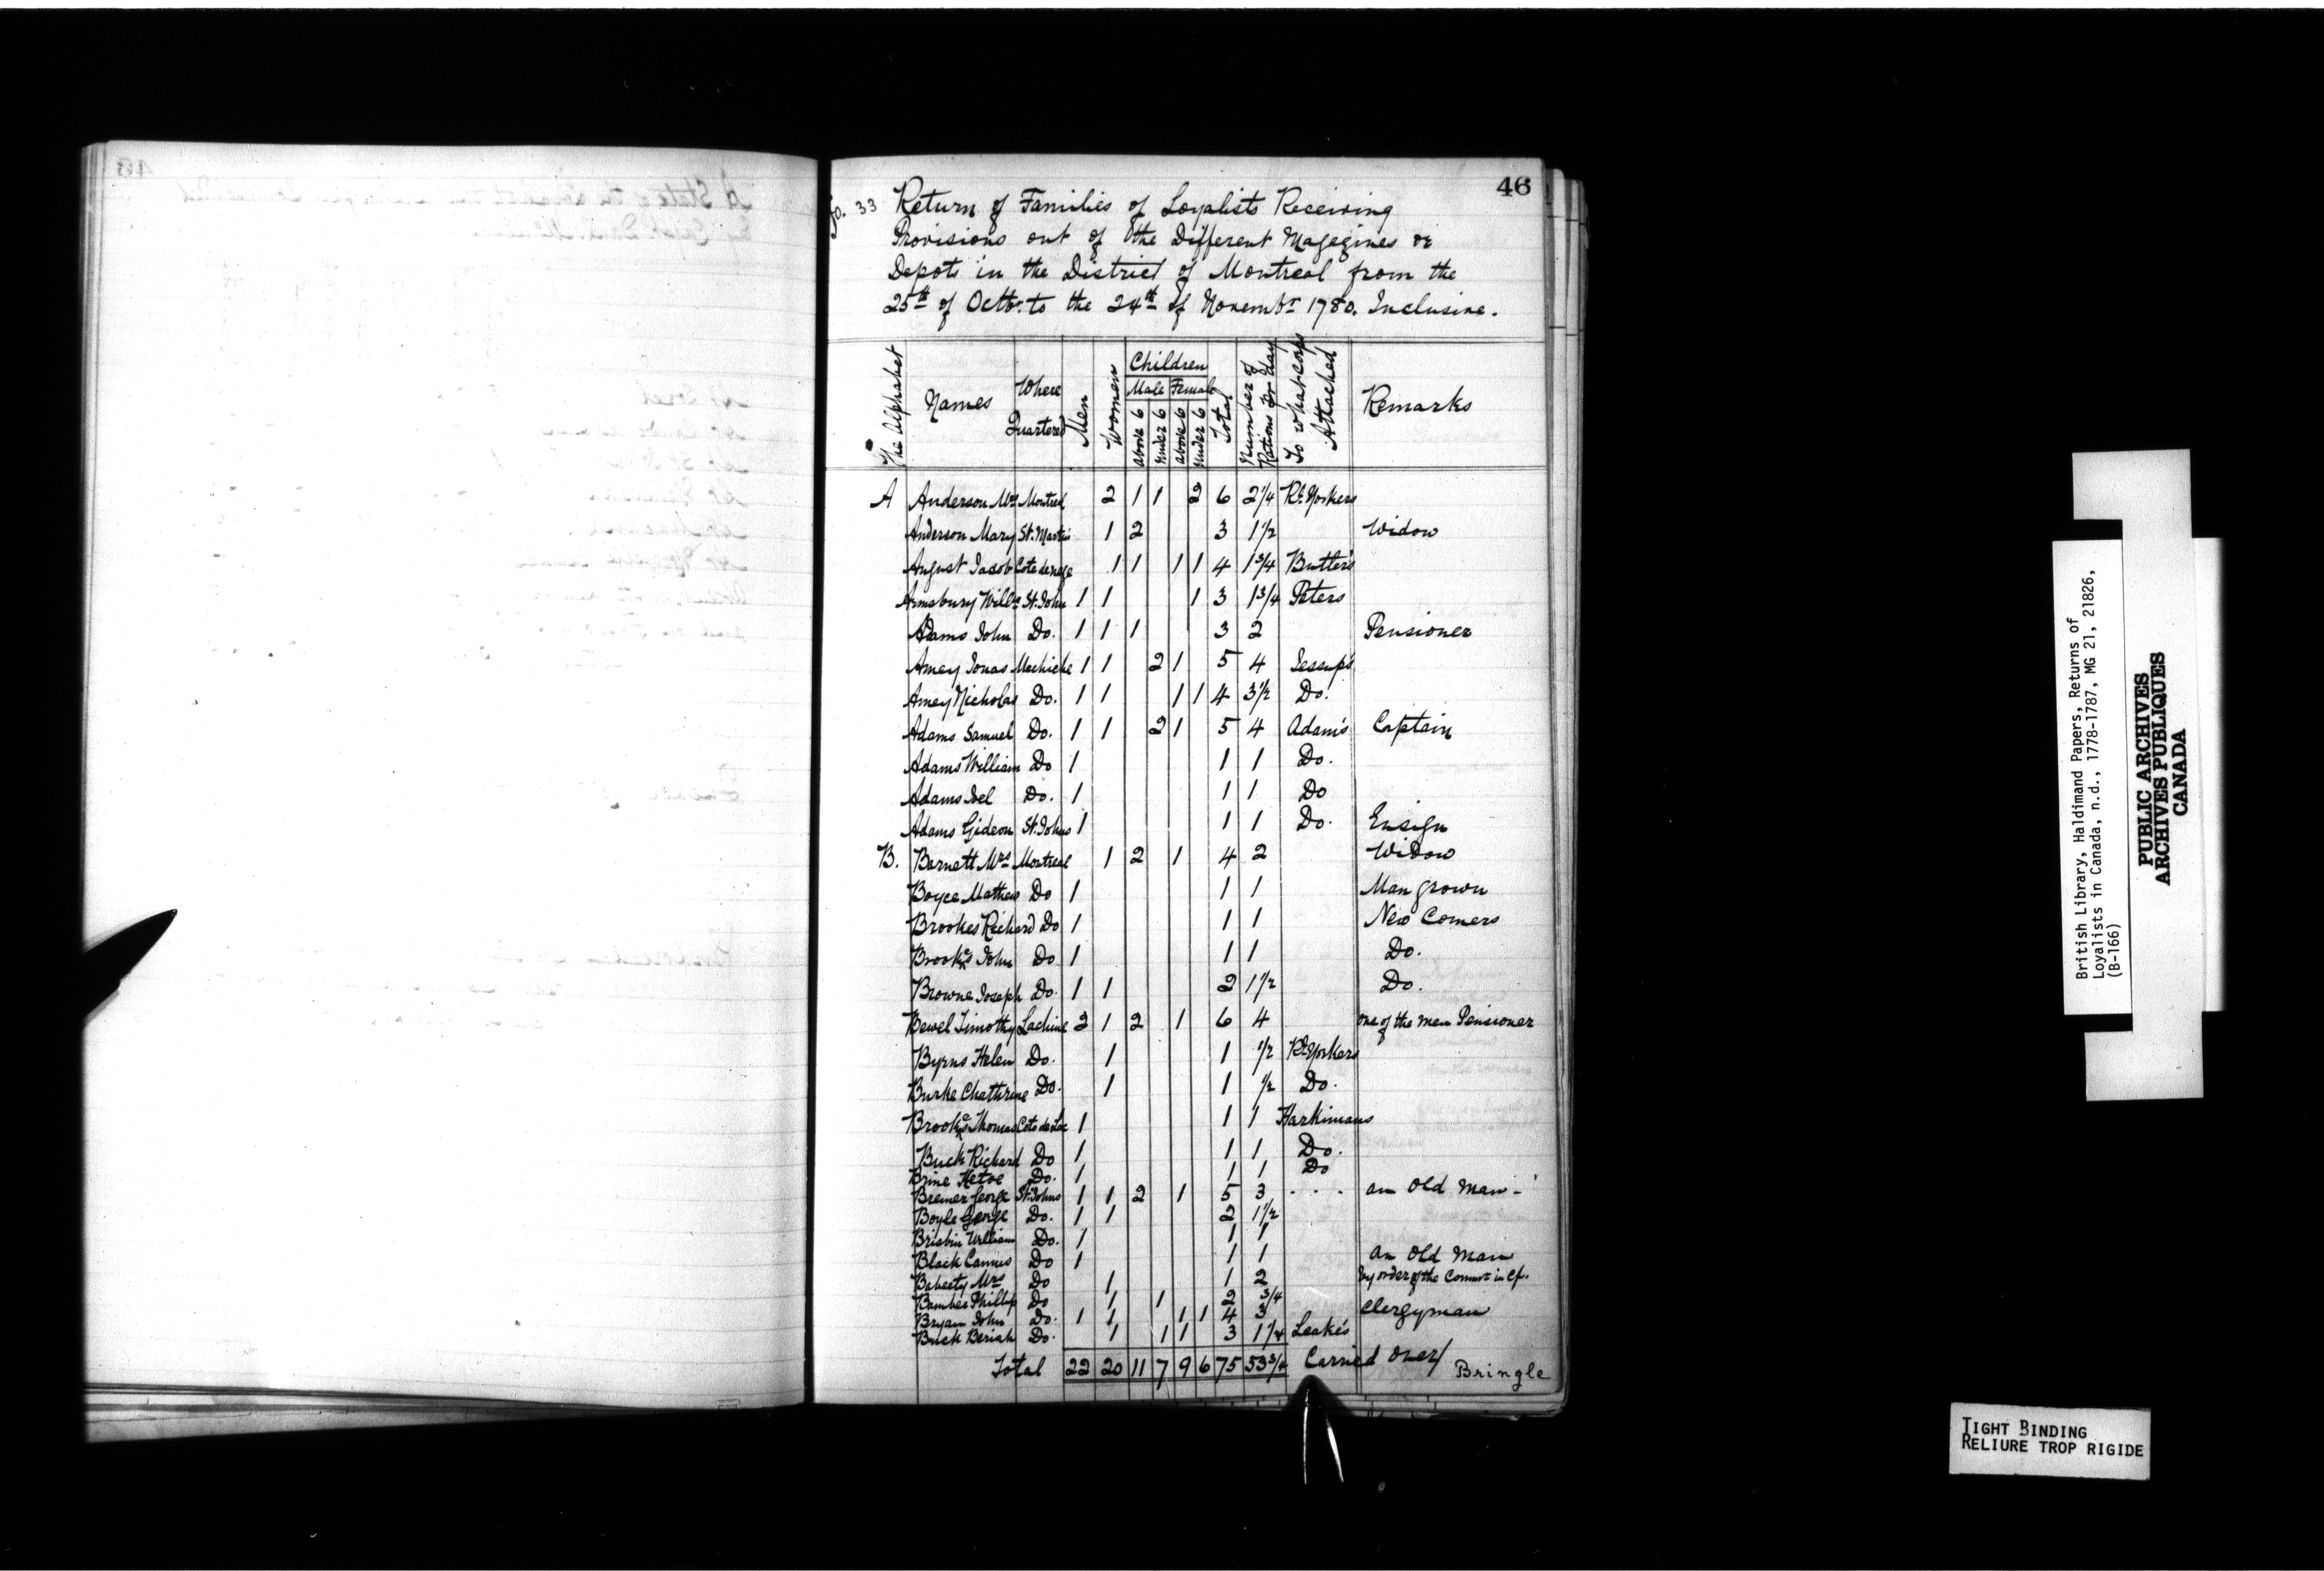 46
fo. 33 Return of Families of Loyalists Receiving
Provisions out of the Different Magezines &
Depots in the District of Montreal from the
25th of Octbr. to the 24th of Novembr 1780. Inclusive.
The Alphabet | Names | Where Quartered | Men | Women | Children Male above 6 | under 6 | Female above 6 | under 6 | Total | Number of Rations pr day | To what Corps Attached | Remarks
A Anderson Mrs Montreal 2 1 1 2 6 2 1/4 Rl. Yorkers
Anderson Mary St. Martin's 1 2 3 1 1/2 Widow
August Jacob Cote de nege 1 1 1 1 4 1 3/4 Butler's
Armsbury Willm St. John 1 1 1 3 1 3/4 Peters
Adams John Do. 1 1 1 3 2 Pensioner
Amey Jonas Machiche 1 1 2 1 5 4 Jessup's
Amey Nicholas Do. 1 1 1 1 4 3 1/2 Do.
Adams Samuel Do. 1 1 2 1 5 4 Adam's Captain
Adams William Do 1 1 1 Do.
Adams Joel Do. 1 1 1 Do
Adams Gideon St. Johns 1 1 1 Do. Ensign
B. Barnett Mrs Montreal 1 2 1 4 2 Widow
Boyce Mathew Do 1 1 1 Man grown
Brookes Richard Do 1 1 1 New Comers
Brookes John Do 1 1 1 Do.
Browne Joseph Do. 1 1 2 1 1/2 Do.
Bewel Timothy Lachine 2 1 2 1 6 4 one of the men Pensioner
Byrns Helen Do. 1 1 1/2 Rl. Yorkers
Burke Chathrine Do. 1 1 1/2 Do.
Brookes Thomas Coto de Lac 1 1 1 Harkimans
Buck Richard Do 1 1 1 Do.
Brine Do. 1 1 1 Do
Bremer George St. Johns 1 1 2 1 5 3 . . . an Old Man -
Boyle George Do. 1 1 2 1 1/2
Brisbin William Do. 1 1 1
Black Do 1 1 1 an Old Man
Mrs Do 1 1 2 by order of the Commr in Cf.
Phillip Do 1 1 2 3/4
Bryan John Do. 1 1 1 1 4 3 Clergyman
Buck Beriah Do. 1 1 1 3 1 1/4 Leake's
Total 22 20 11 7 9 6 75 53 3/4 Carried over/
Bringle
British Library, Haldimand Papers, Returns of
Loyalists in Canada, n.d., 1778-1787, MG 21, 21826,
(B-166)
PUBLIC ARCHIVES
ARCHIVES PUBLIQUES
CANADA
TIGHT BINDING
RELIURE TROP RIGIDE